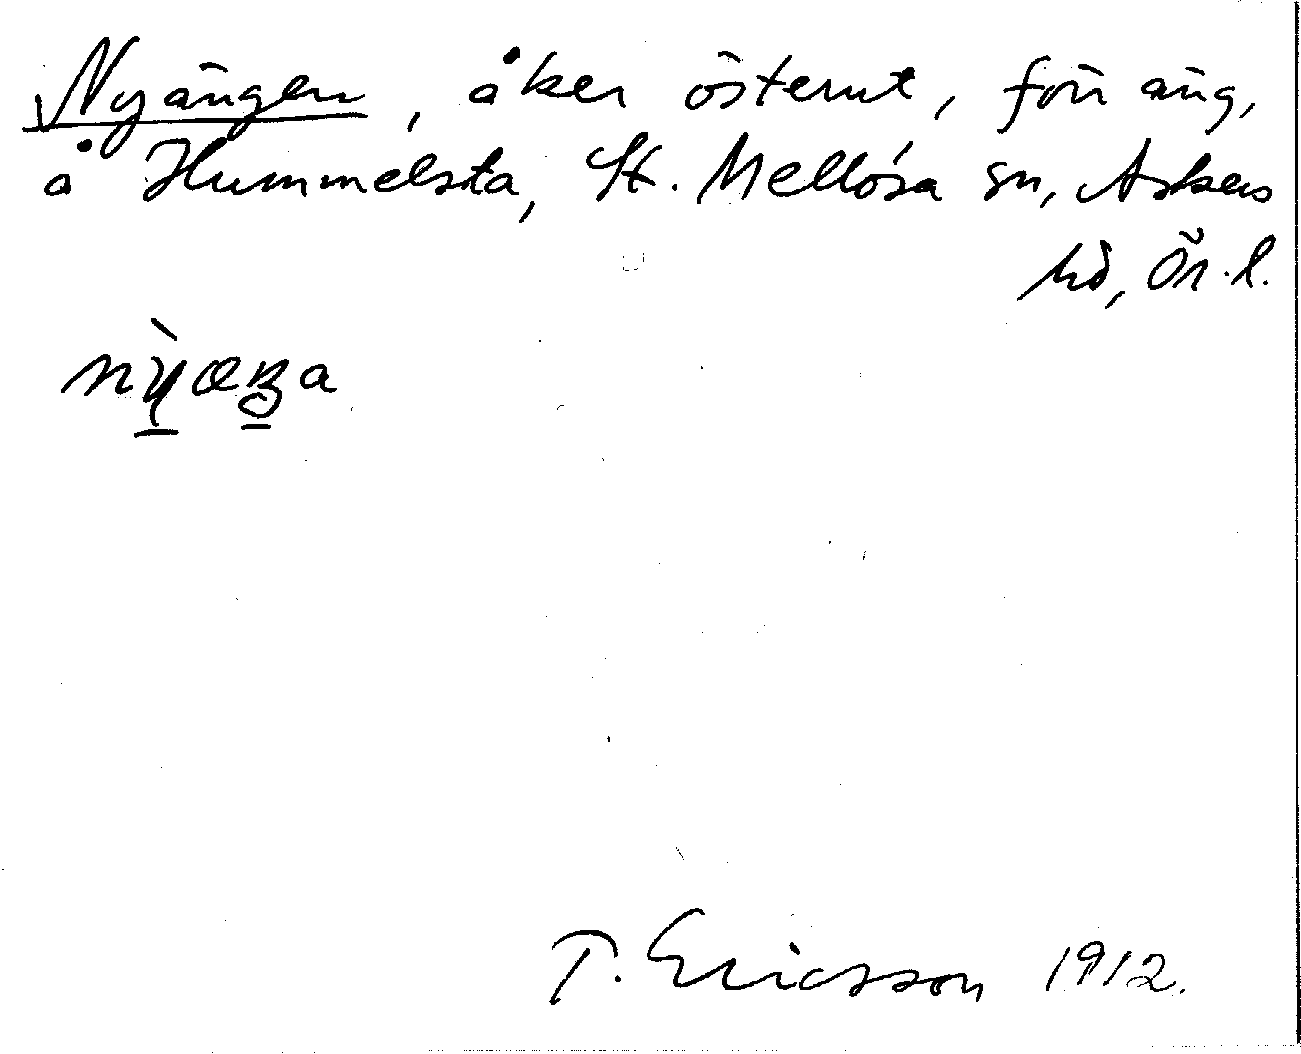 Nyängen, åker österut, förr äng,
å Hummelsta, St. Mellösa sn, Askers
hd, Ör. l.
T. Ericsson 1912.